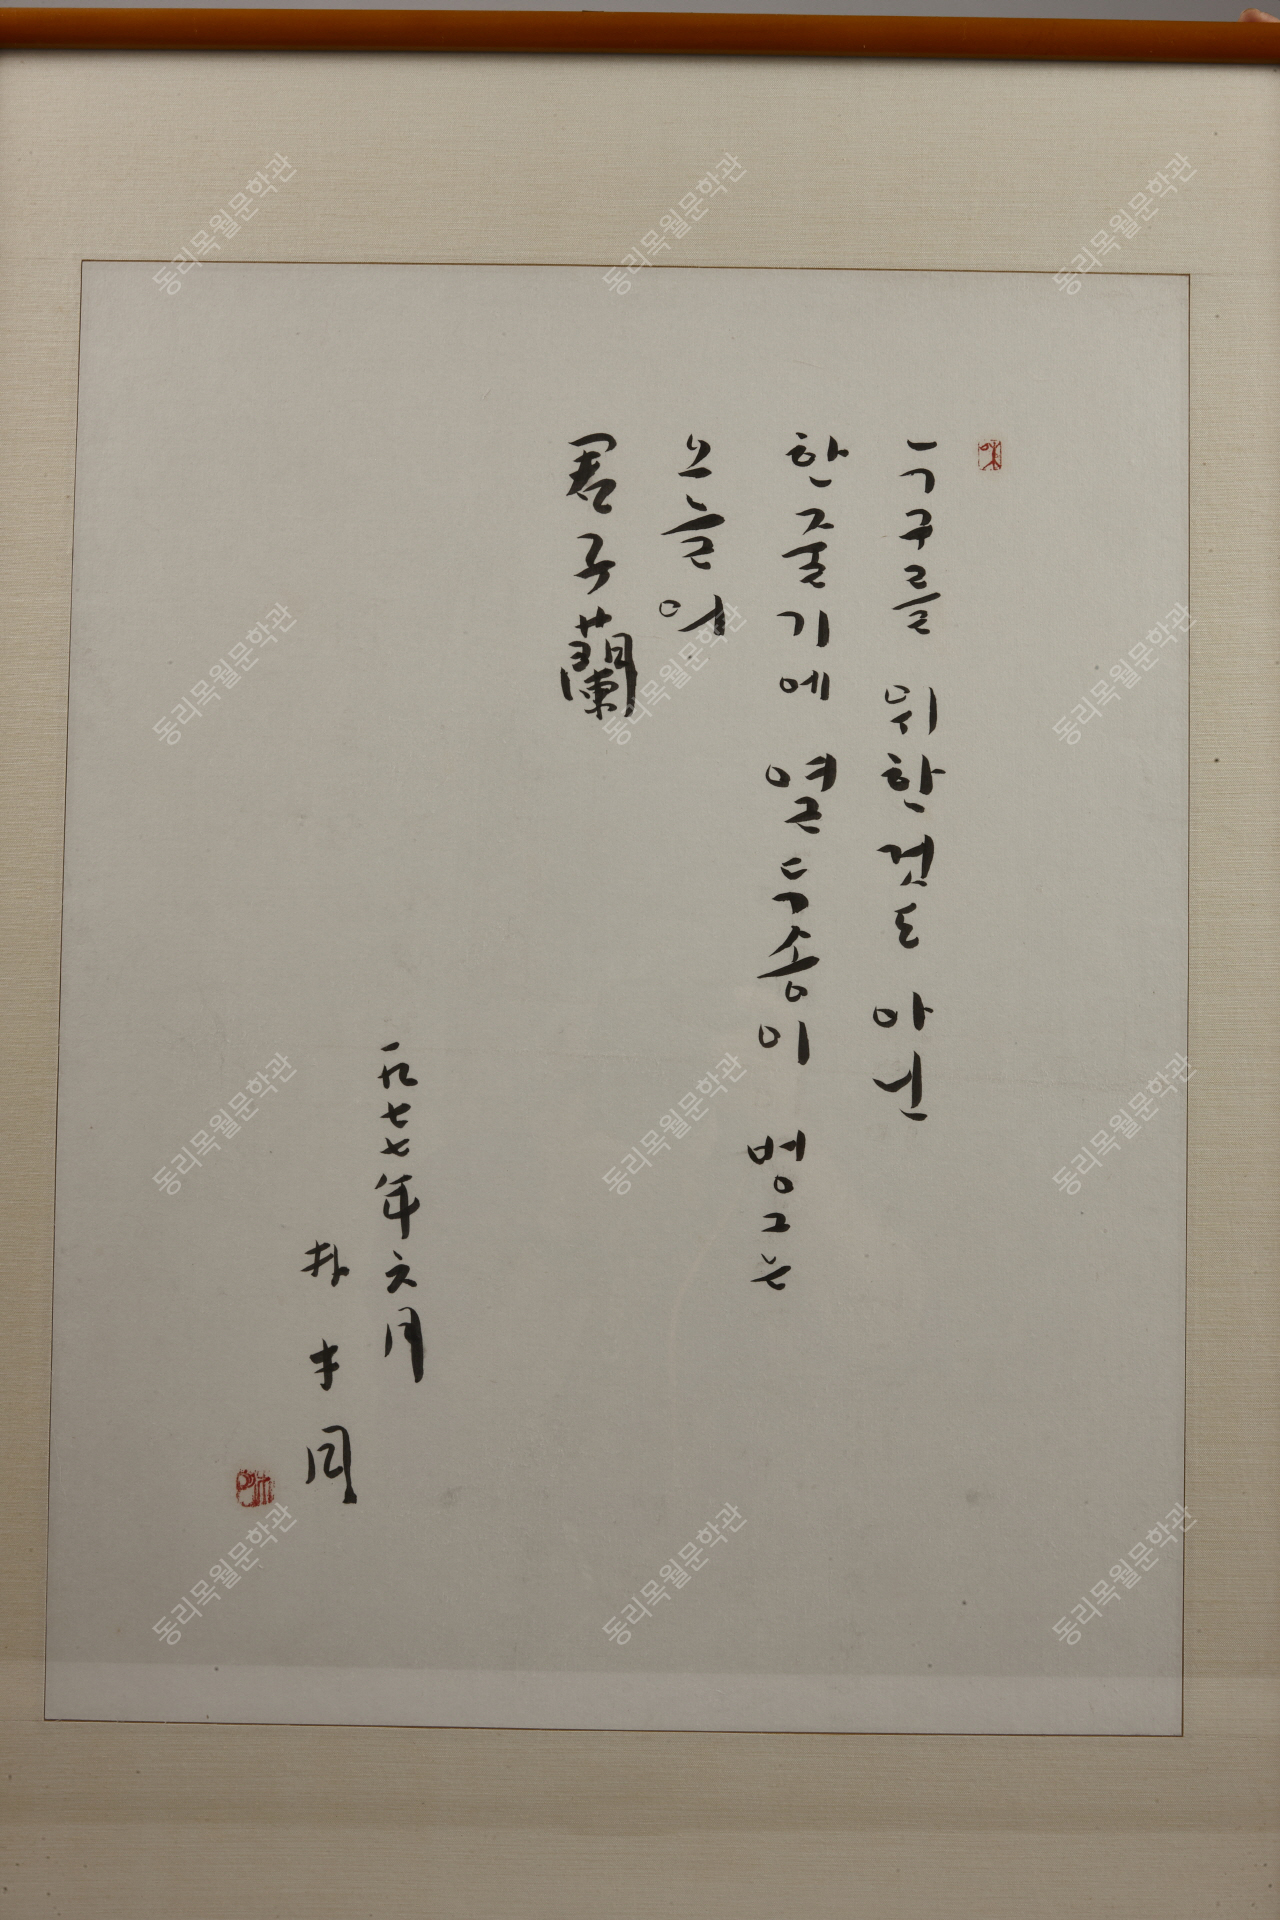 누구를 위한것도 아닌
한줄기에 열두송이 벙그는
오늘의
君子蘭
一九七七年六月
朴木月
동리목월문학관
동리목월문학관
동리목월문학관
동리목월문학관
동리목월문학관
동리목월문학관
동리목월문학관
동리목월문학관
동리목월문학관
동리목월문학관
동리목월문학관
동리목월문학관